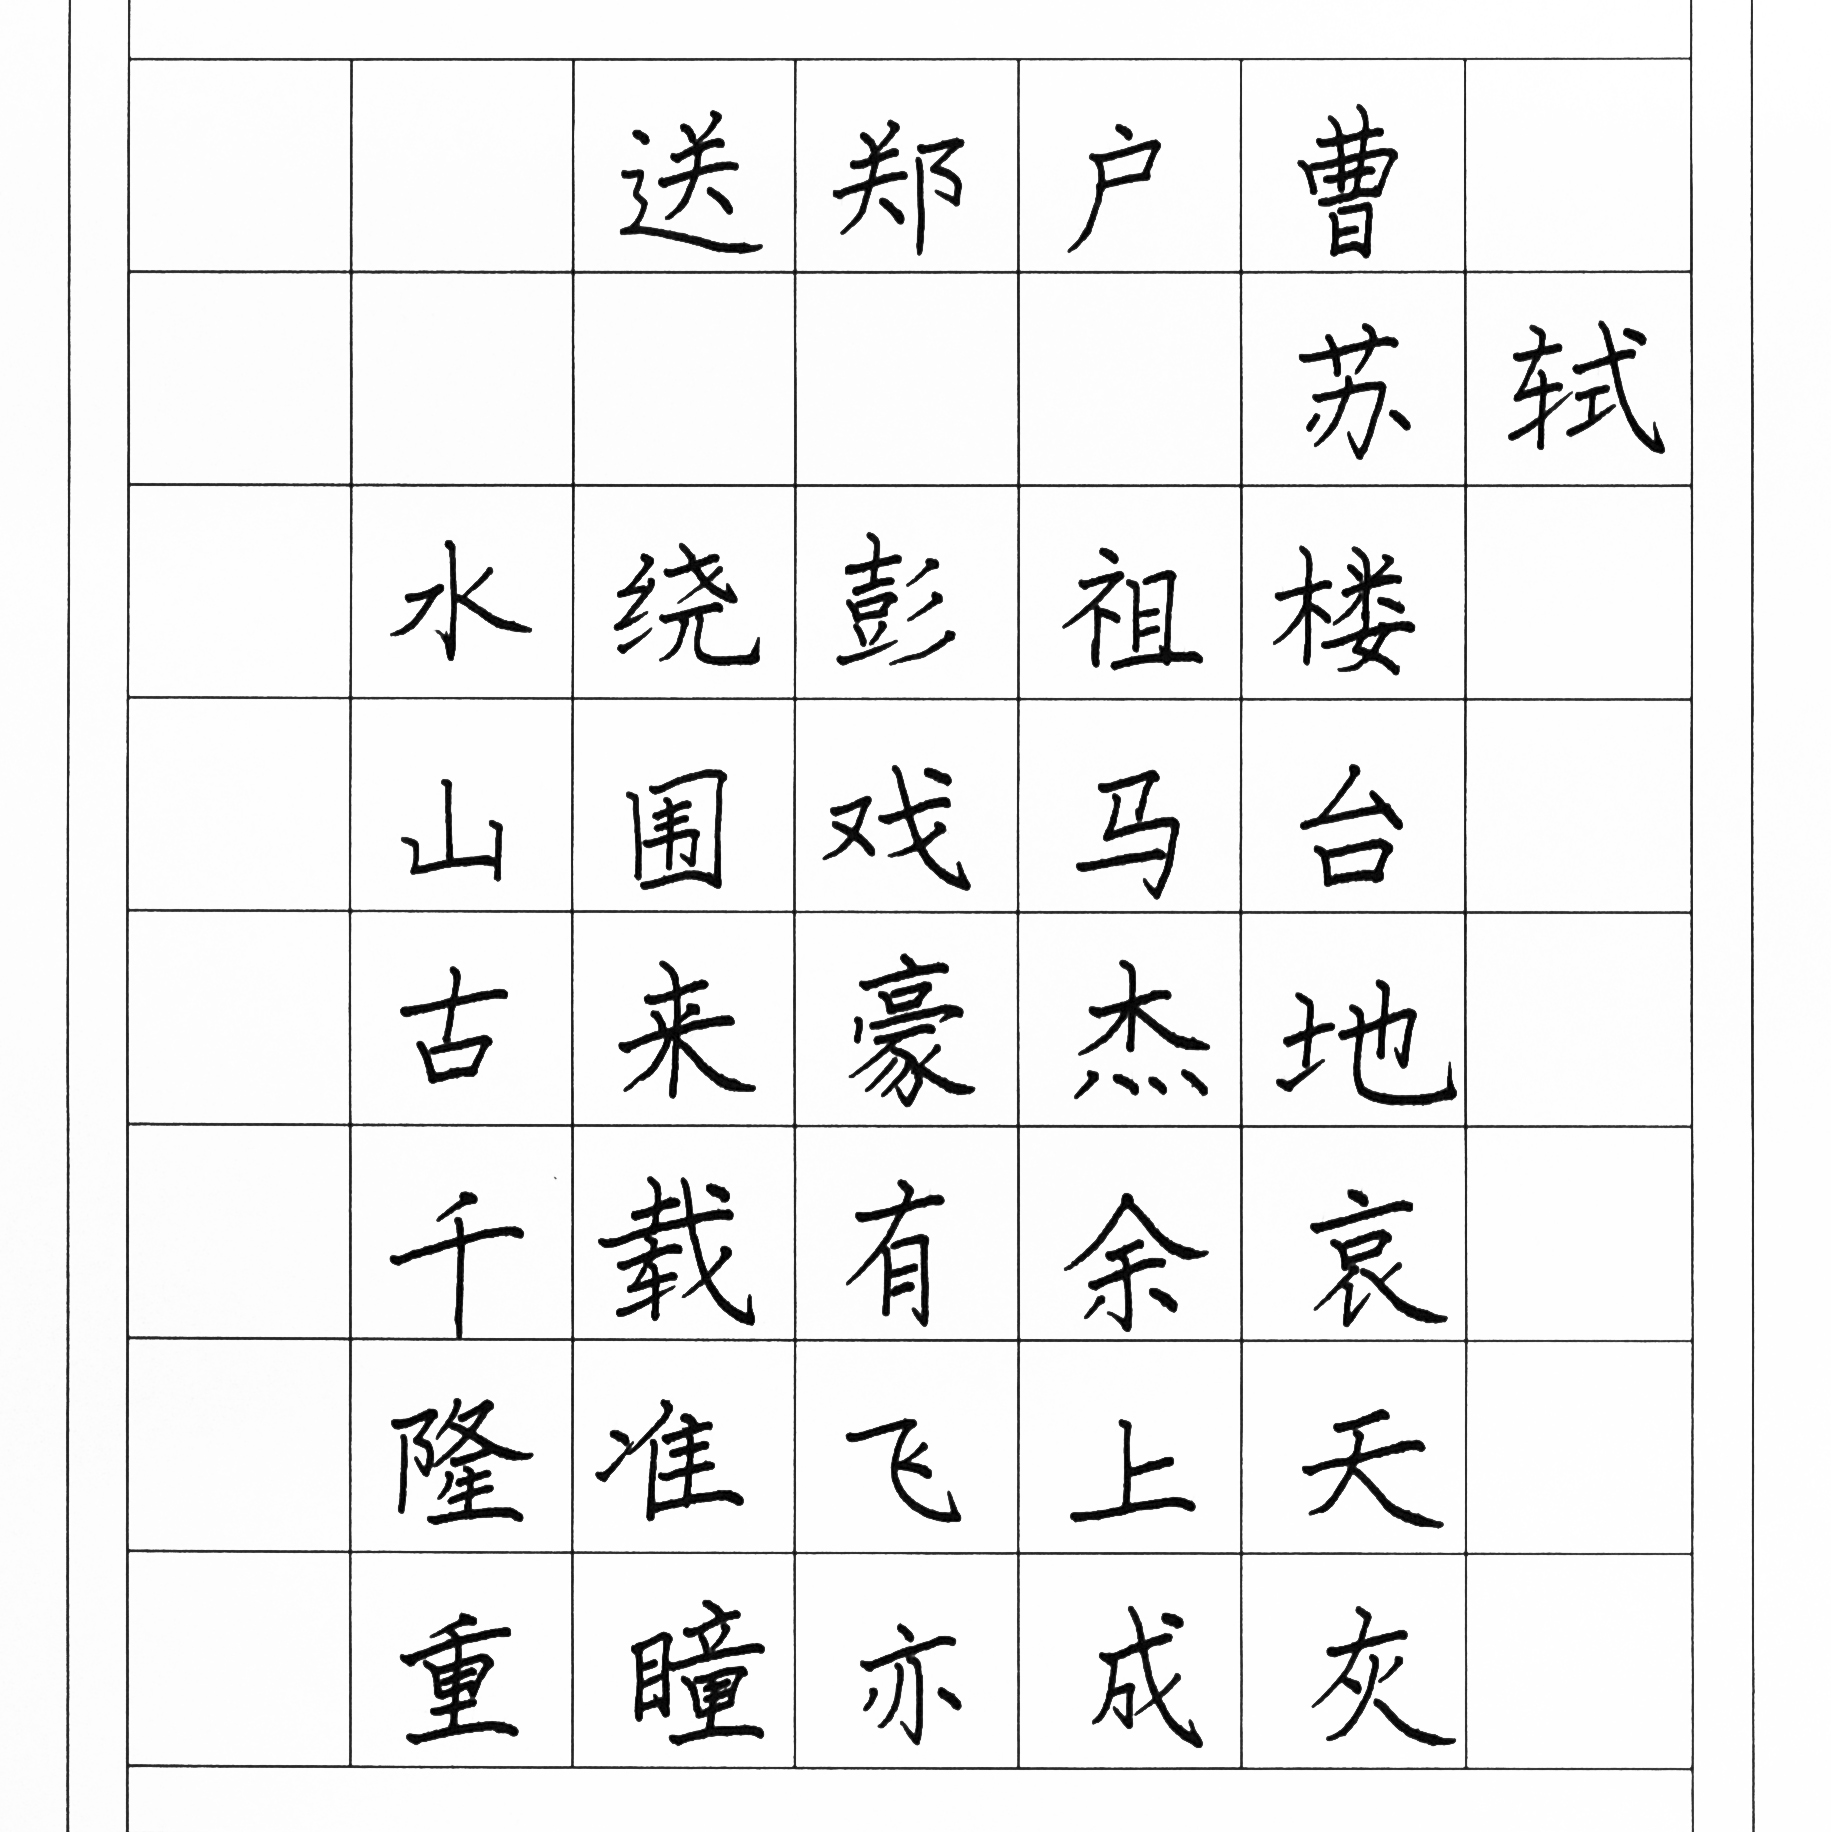 送郑户曹
苏轼
水绕彭祖楼
山围戏马台
古来豪杰地
千载有余哀
隆准飞上天
重瞳亦成灰